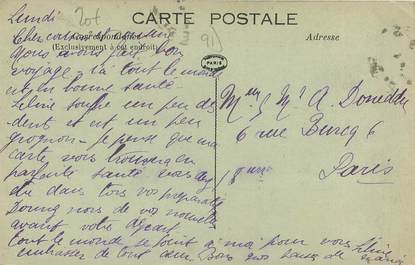 CARTE POSTALE
Correspondance
(Exclusivement à cet endroit)
Adresse
PARIS
Lundi
Cher cousin
Nous avons fait bon
voyage tout le monde
est en bonne santé
souffre un peu de
dent et est un peu
grognon je pense que ma
carte vous trouvera en
parfaite santé vous
dans tous vos préparatifs
Donne nous de vos nouvelles
avant votre départ
tout le monde se joint à moi pour vous
embrasser de tout cœur
Mr A. Doneddu
6 rue Burcq 6
Paris